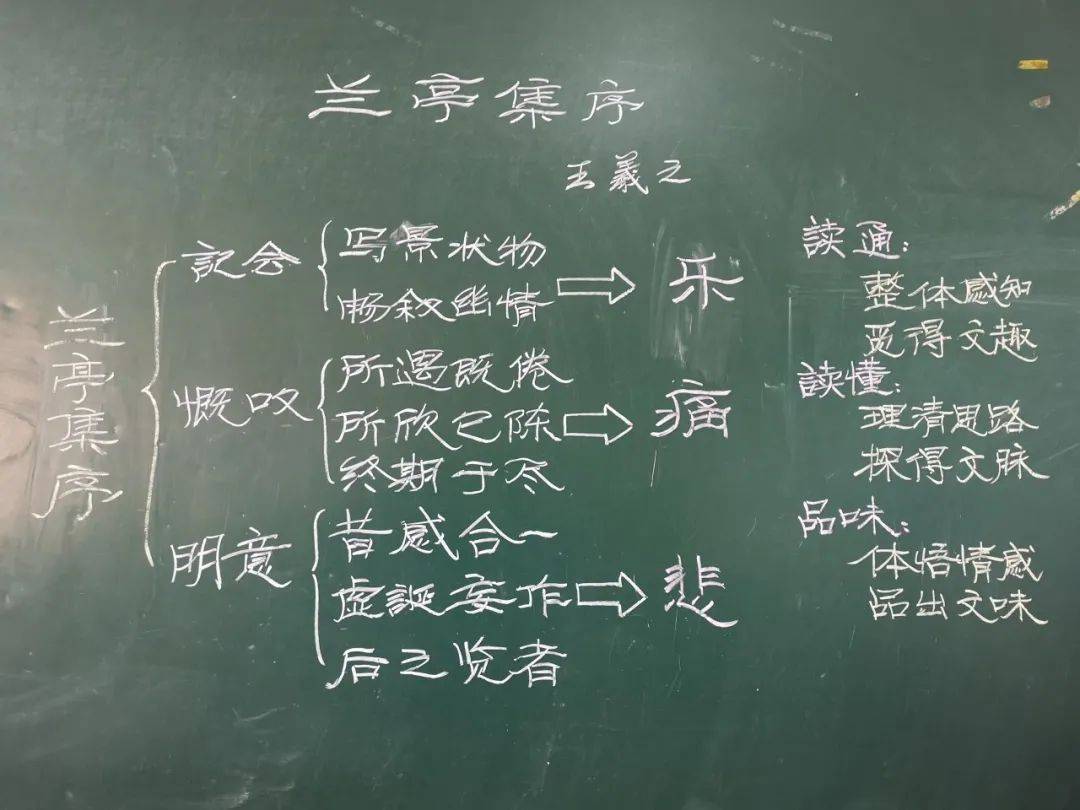 兰亭集序
王羲之
兰亭集序
記会
写景状物
畅叙幽情
乐
慨叹
所遇既倦
所欣已陈
终期于尽
痛
明意
昔感合一
虚誕妄作
后之览者
悲
読通：
整体感知
觅得文趣
読懂：
理清思路
探得文脉
品味：
体悟情感
品出文味